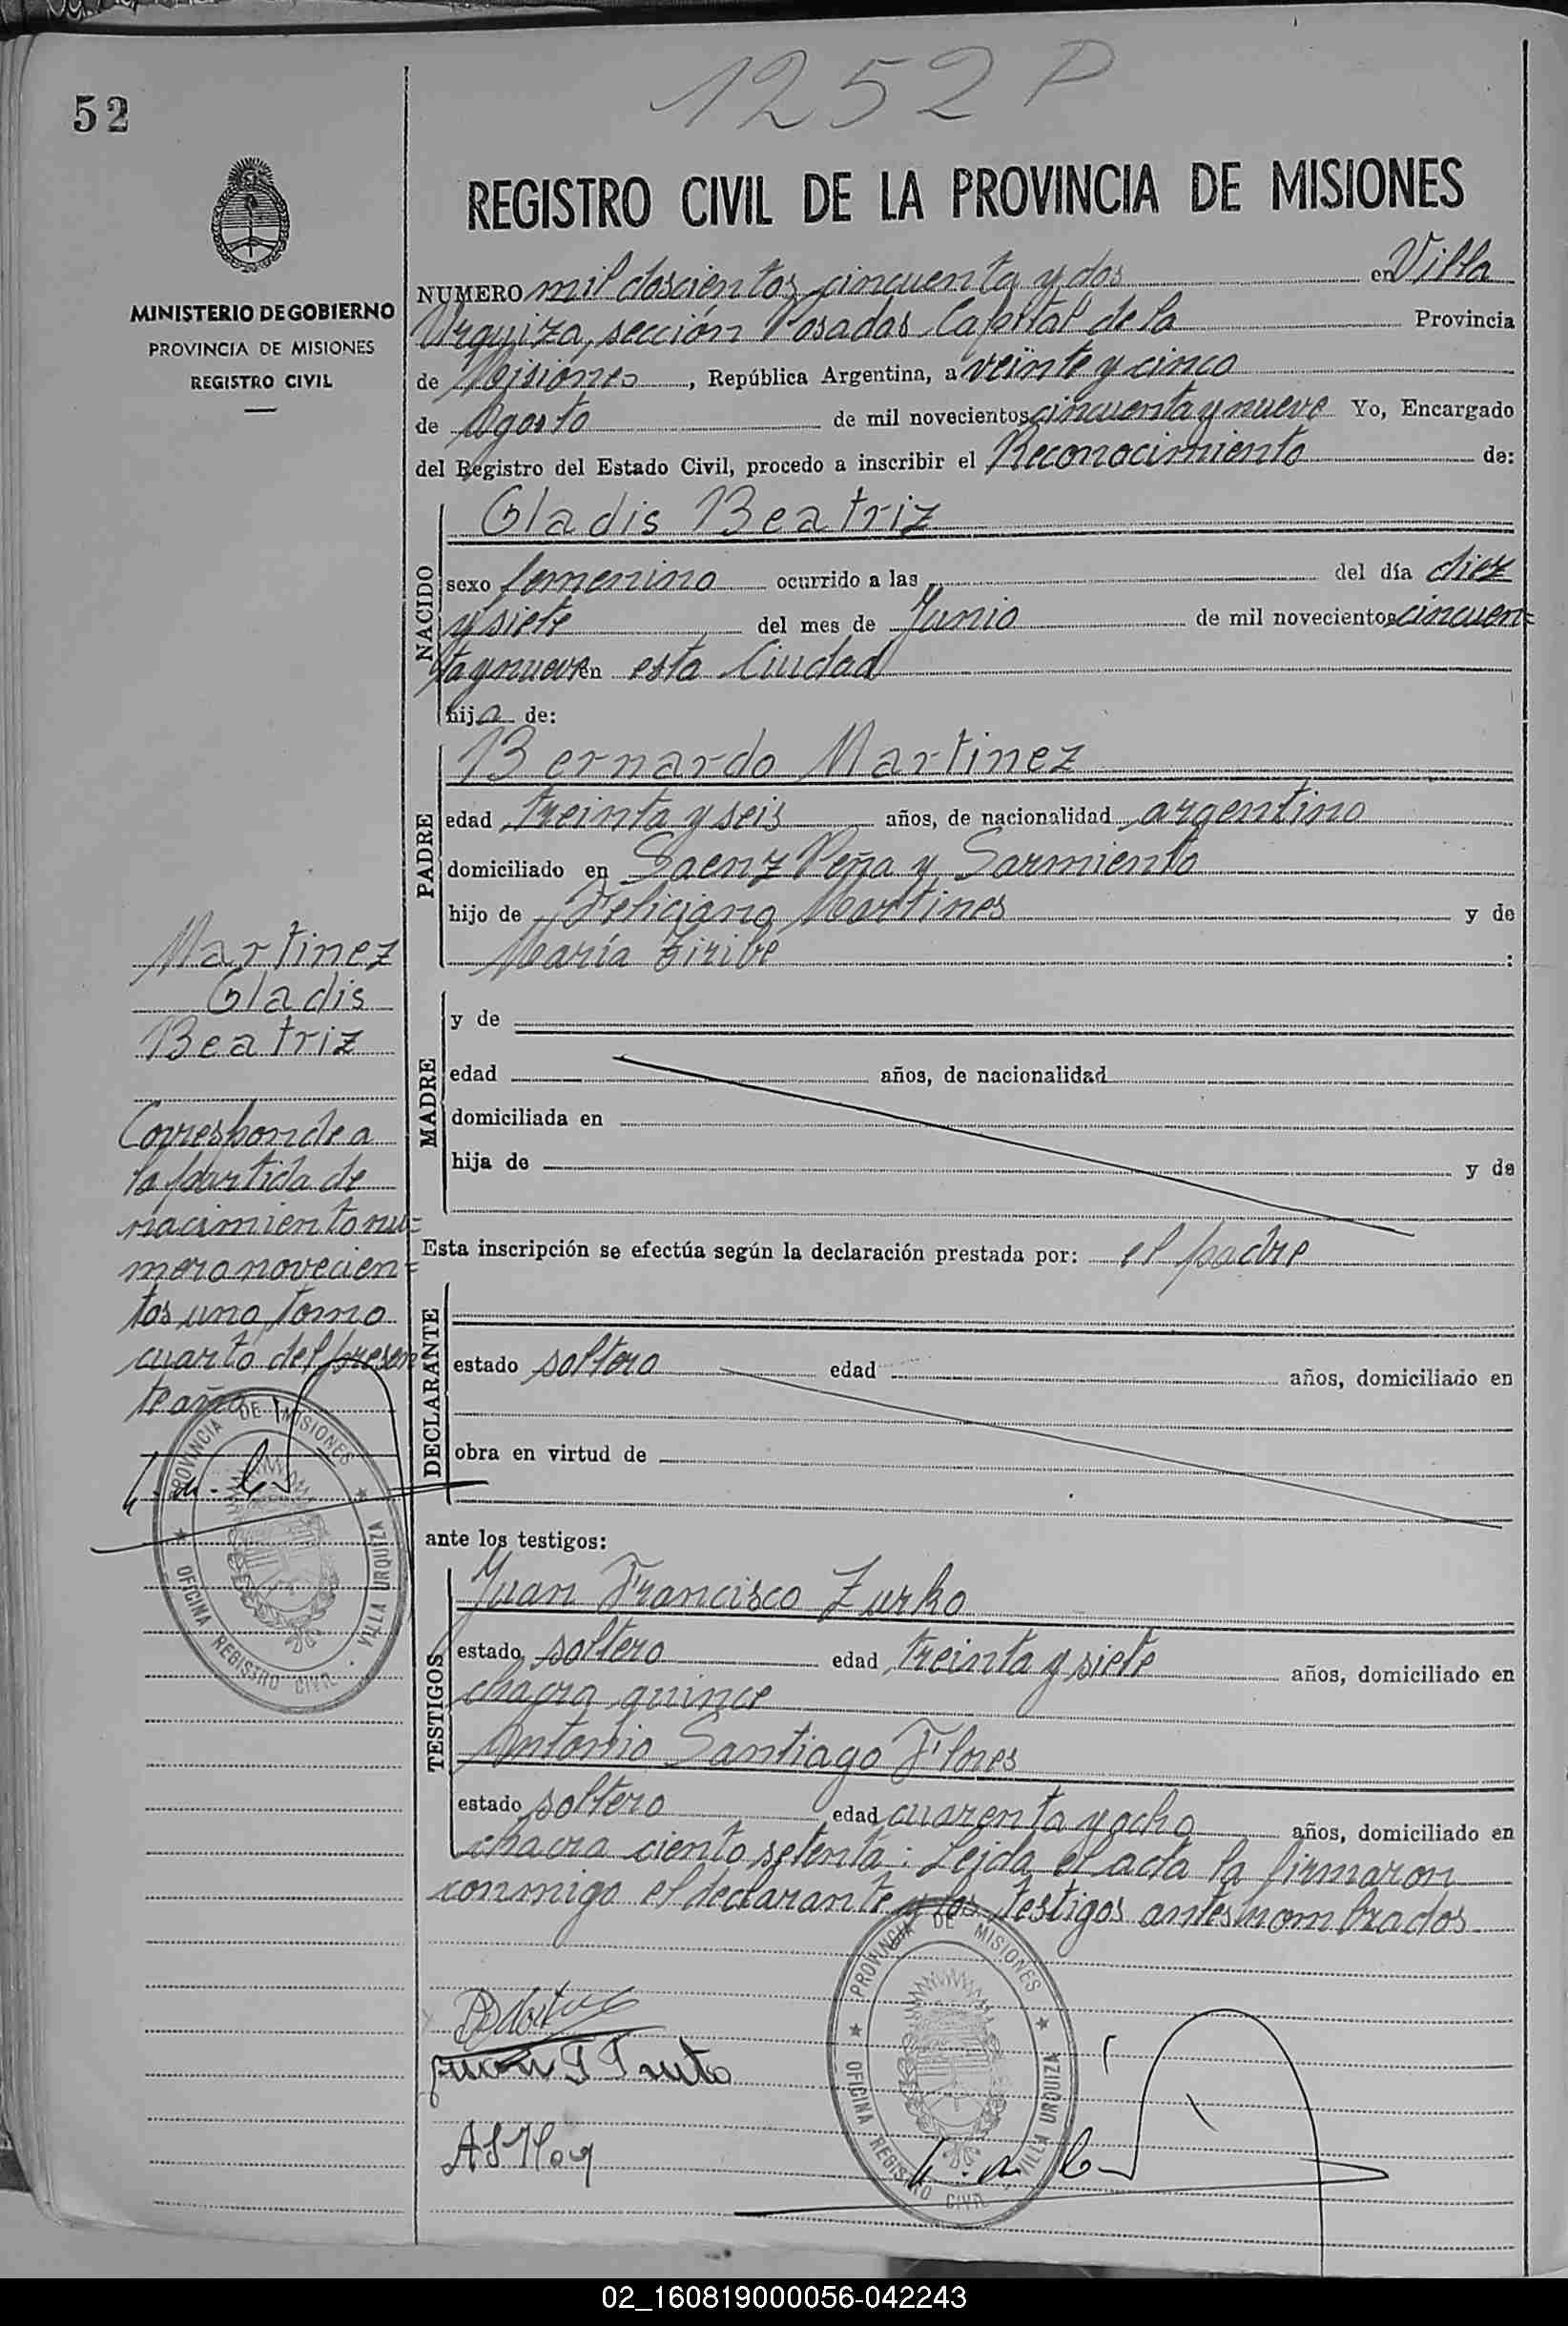 52
1252 P
MINISTERIO DE GOBIERNO
PROVINCIA DE MISIONES
REGISTRO CIVIL
REGISTRO CIVIL DE LA PROVINCIA DE MISIONES
NUMERO mil doscientos cincuenta y dos en Villa
Urquiza, sección Posadas Capital de la Provincia
de Misiones, República Argentina, a veinte y cinco
de Agosto de mil novecientos cincuenta y nueve Yo, Encargado
del Registro del Estado Civil, procedo a inscribir el Reconocimiento de:
NACIDO
Gladis Beatriz
sexo femenino ocurrido a las del día diez
y siete del mes de Junio de mil novecientos cincuen=
ta y nueve en esta Ciudad
hija de:
PADRE
Bernardo Martinez
edad treinta y seis años, de nacionalidad argentino
domiciliado en Saenz Peña y Sarmiento
hijo de Feliciano Martines y de
María :
MADRE
y de
edad años, de nacionalidad
domiciliada en
hija de y de
Esta inscripción se efectúa según la declaración prestada por: el padre
DECLARANTE
estado soltero edad años, domiciliado en
obra en virtud de
ante los testigos:
TESTIGOS
Juan Francisco Zurko
estado soltero edad treinta y siete años, domiciliado en
chacra quince
Antonio Santiago Flores
estado soltero edad cuarenta y ocho años, domiciliado en
chacra ciento setenta: Leida el acta la firmaron
conmigo el declarante y los testigos antes nombrados
Martinez
Gladis
Beatriz
Corresponde a
la partida de
nacimiento nu=
mero novecien=
tos uno, tomo
cuarto del presen
te año
PROVINCIA DE MISIONES
OFICINA REGISTRO CIVIL - VILLA URQUIZA
PROVINCIA DE MISIONES
OFICINA REGISTRO CIVIL - VILLA URQUIZA
02_160819000056-042243